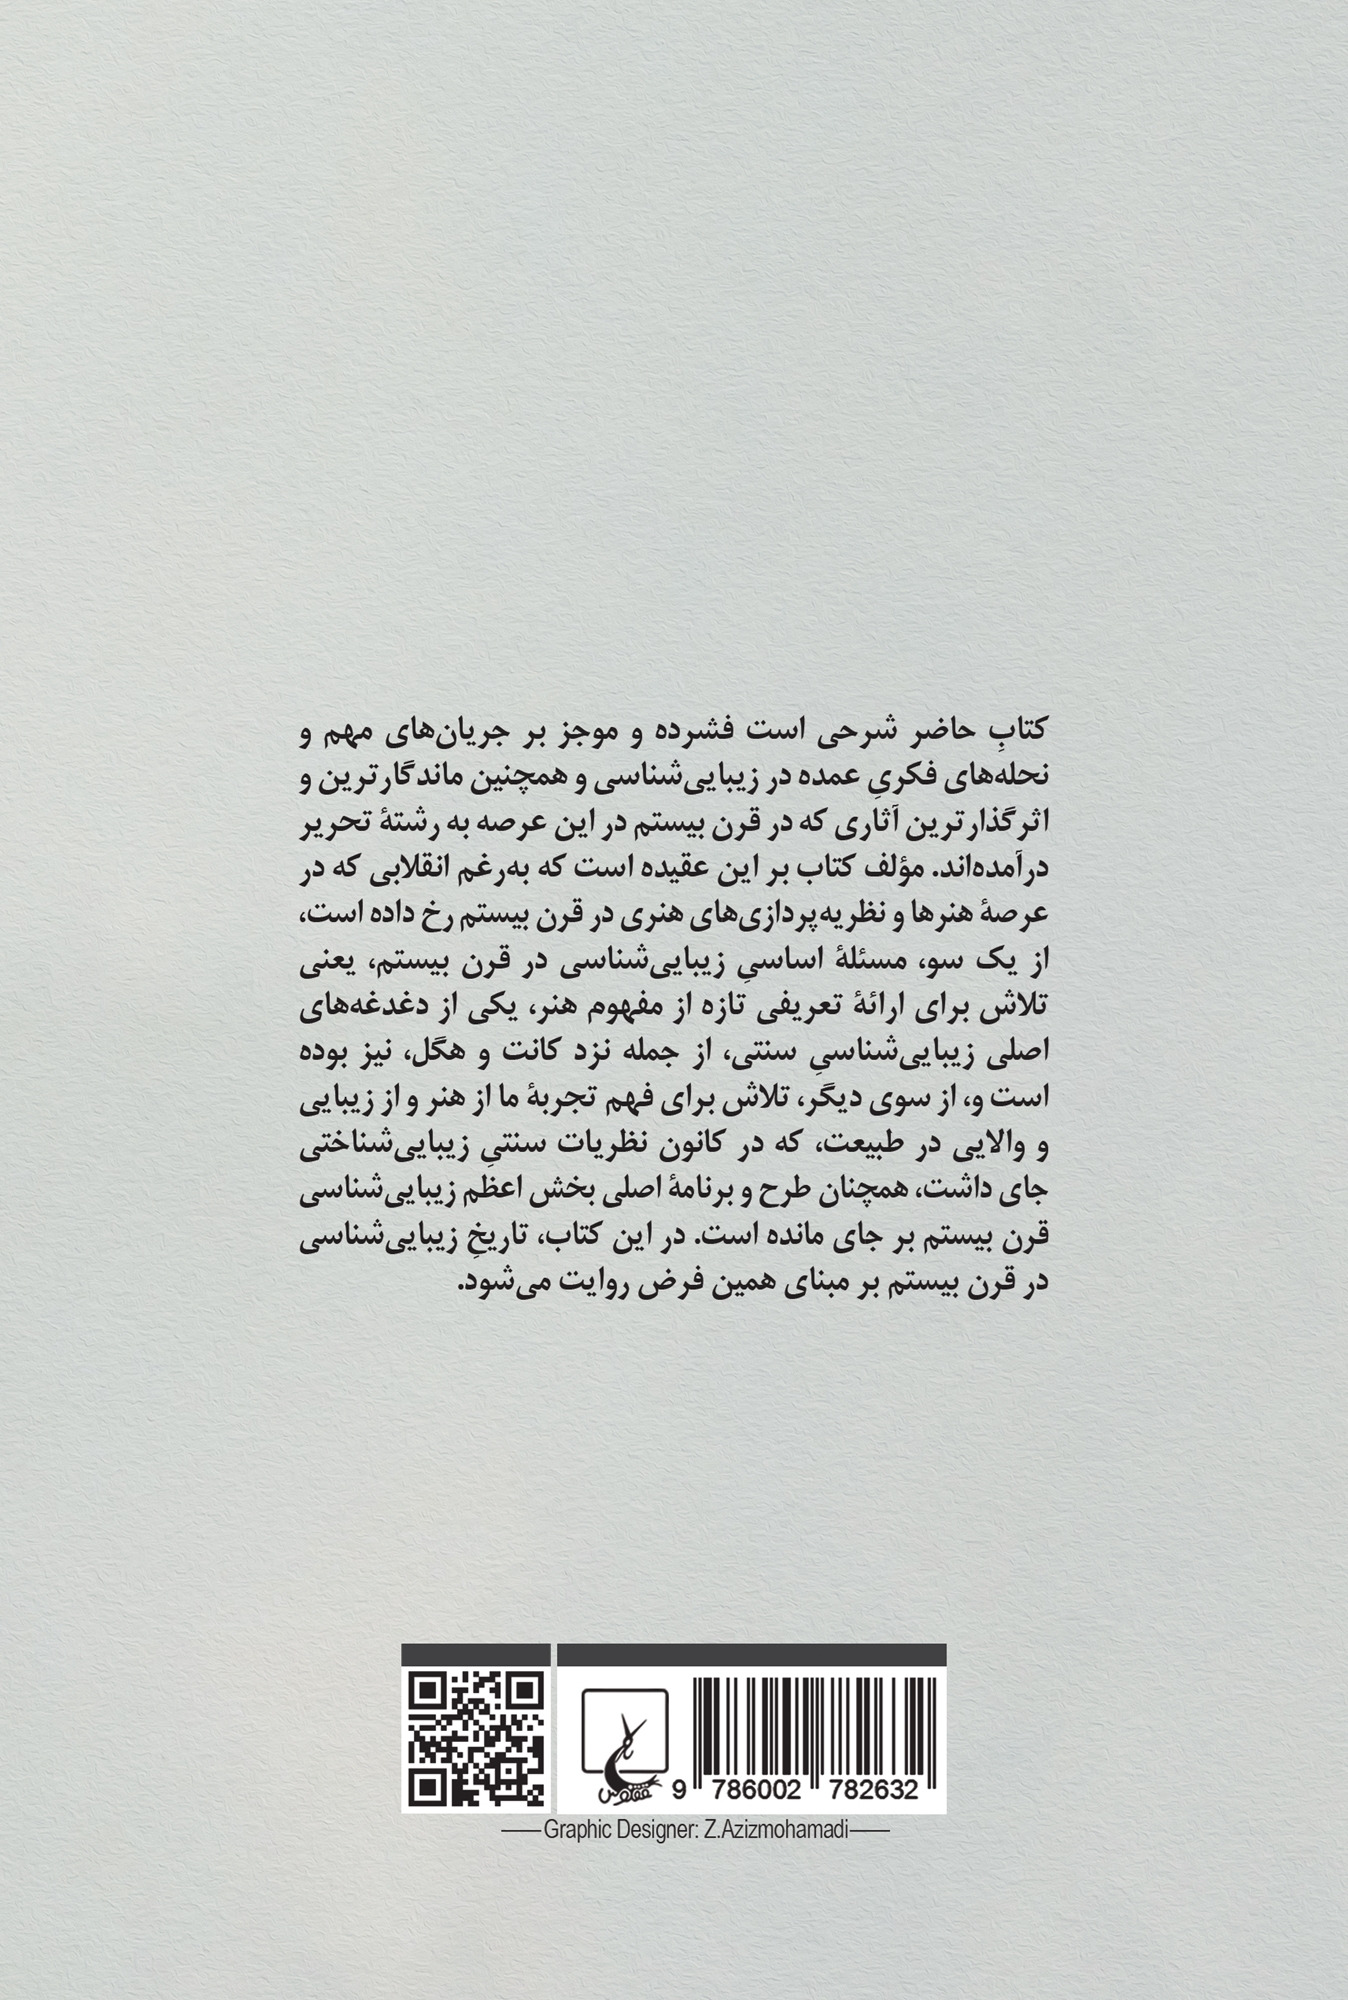 کتابِ حاضر شرحی است فشرده و موجز بر جریان‌های مهم و
نحله‌های فکریِ عمده در زیبایی‌شناسی و همچنین ماندگارترین و
اثرگذارترین آثاری که در قرن بیستم در این عرصه به رشتهٔ تحریر
درآمده‌اند. مؤلف کتاب بر این عقیده است که به‌رغم انقلابی که در
عرصهٔ هنرها و نظریه‌پردازی‌های هنری در قرن بیستم رخ داده است،
از یک سو، مسئلهٔ اساسیِ زیبایی‌شناسی در قرن بیستم، یعنی
تلاش برای ارائهٔ تعریفی تازه از مفهوم هنر، یکی از دغدغه‌های
اصلی زیبایی‌شناسیِ سنتی، از جمله نزد کانت و هگل، نیز بوده
است و، از سوی دیگر، تلاش برای فهم تجربهٔ ما از هنر و از زیبایی
و والایی در طبیعت، که در کانون نظریات سنتیِ زیبایی‌شناختی
جای داشت، همچنان طرح و برنامهٔ اصلی بخش اعظم زیبایی‌شناسی
قرن بیستم بر جای مانده است. در این کتاب، تاریخِ زیبایی‌شناسی
در قرن بیستم بر مبنای همین فرض روایت می‌شود.
ققنوس
9 786002 782632
Graphic Designer: Z.Azizmohamadi